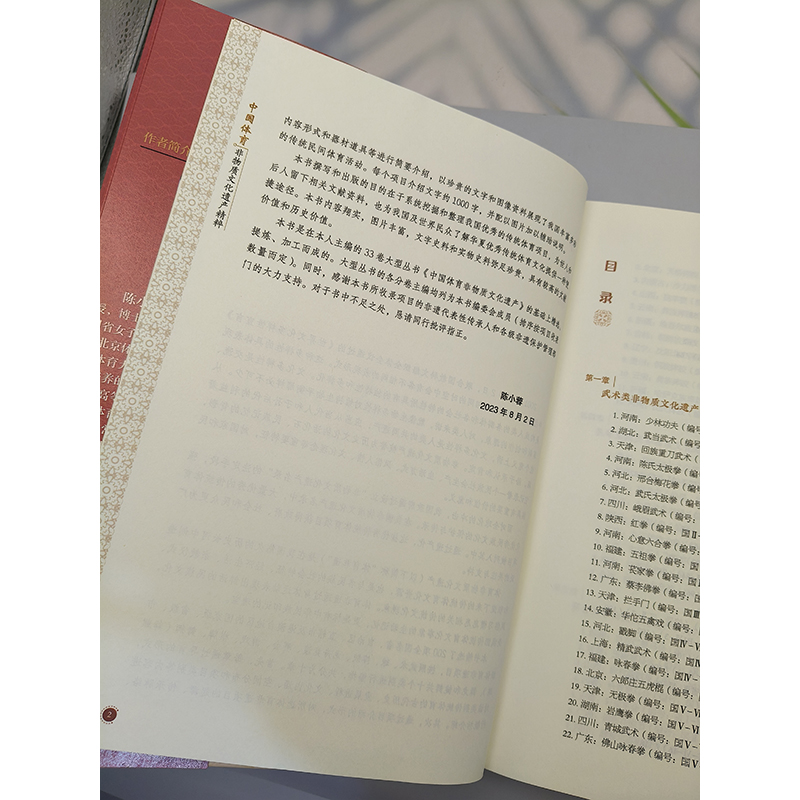 作者简介
陈小
北京体
中国体育
非物质文化遗产精粹
内容形式和器材道具等进行简要介绍，以珍贵的文字和图像资料展现了我国丰富多彩
的传统民间体育活动。每个项目介绍文字约1000字，并配以图片加以辅助说明。
本书撰写和出版的目的在于系统挖掘和整理我国优秀的传统体育项目，为世人和
后人留下相关文献资料，也为我国及世界民众了解华夏优秀传统体育文化提供一种便
捷途径。本书内容翔实，图片丰富，文字史料和实物史料弥足珍贵，具有较高的文献
价值和历史价值。
本书是在本人主编的33卷大型丛书《中国体育非物质文化遗产》的基础上精选、
提炼、加工而成的。大型丛书的各分卷主编均列为本书编委会成员（排序按项目收录
数量而定）。同时，感谢本书所收录项目的非遗代表性传承人和各级非遗保护管理部
门的大力支持。对于书中不足之处，恳请同行批评指正。
陈小蓉
2023年8月2日
2
目录
第一章
武术类非物质文化遗产
1. 河南：少林功夫（编号
2. 湖北：武当武术（编号
3. 天津：回族重刀武术（
4. 河南：陈氏太极拳（编
5. 河北：邢台梅花拳（编
6. 河北：武氏太极拳（编
7. 四川：峨眉武术（编号：
8. 陕西：红拳（编号：国Ⅱ-
9. 河南：心意六合拳（编号
10. 福建：五祖拳（编号：国
11. 河南：苌家拳（编号：国
12. 广东：蔡李佛拳（编号：
13. 天津：拦手门（编号：国Ⅲ
14. 安徽：华佗五禽戏（编号：
15. 河北：戳脚（编号：国Ⅳ-Ⅵ
16. 上海：精武武术（编号：国Ⅳ
17. 福建：咏春拳（编号：国Ⅳ-Ⅵ
18. 北京：六郎庄五虎棍（编号：
19. 天津：无极拳（编号：国Ⅴ-Ⅵ
20. 湖南：岩鹰拳（编号：国Ⅴ-Ⅵ
21. 四川：青城武术（编号：国Ⅴ-
22. 广东：佛山咏春拳（编号：国